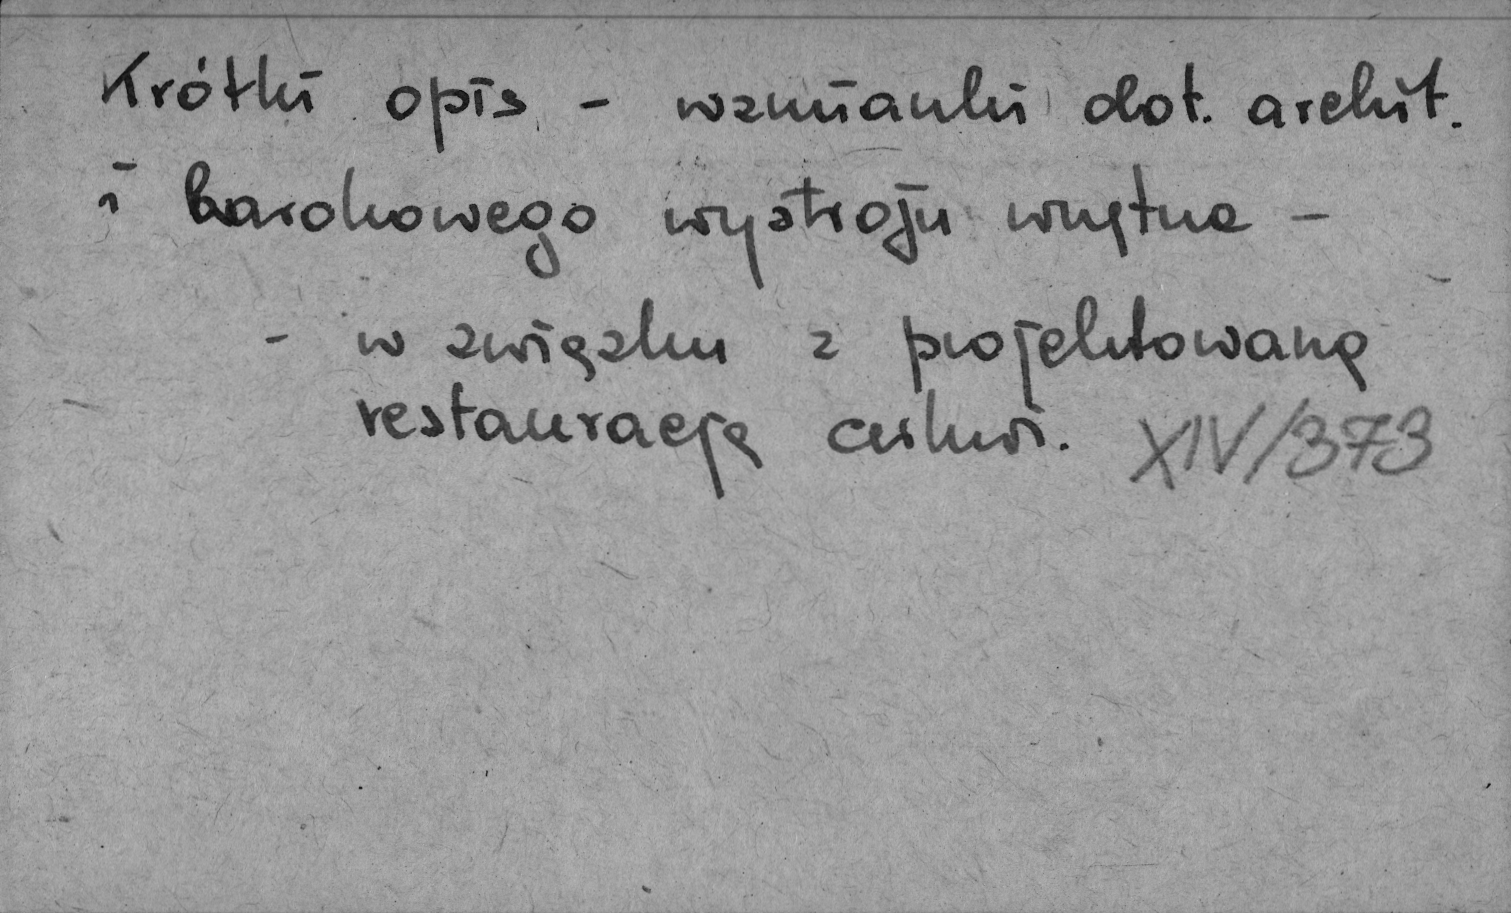 Krótki opis - wzmianki dot. archit.
i barokowego wystroju wnętrza -
- w związku z projektowaną
restauracją cerkwi. XIV/373